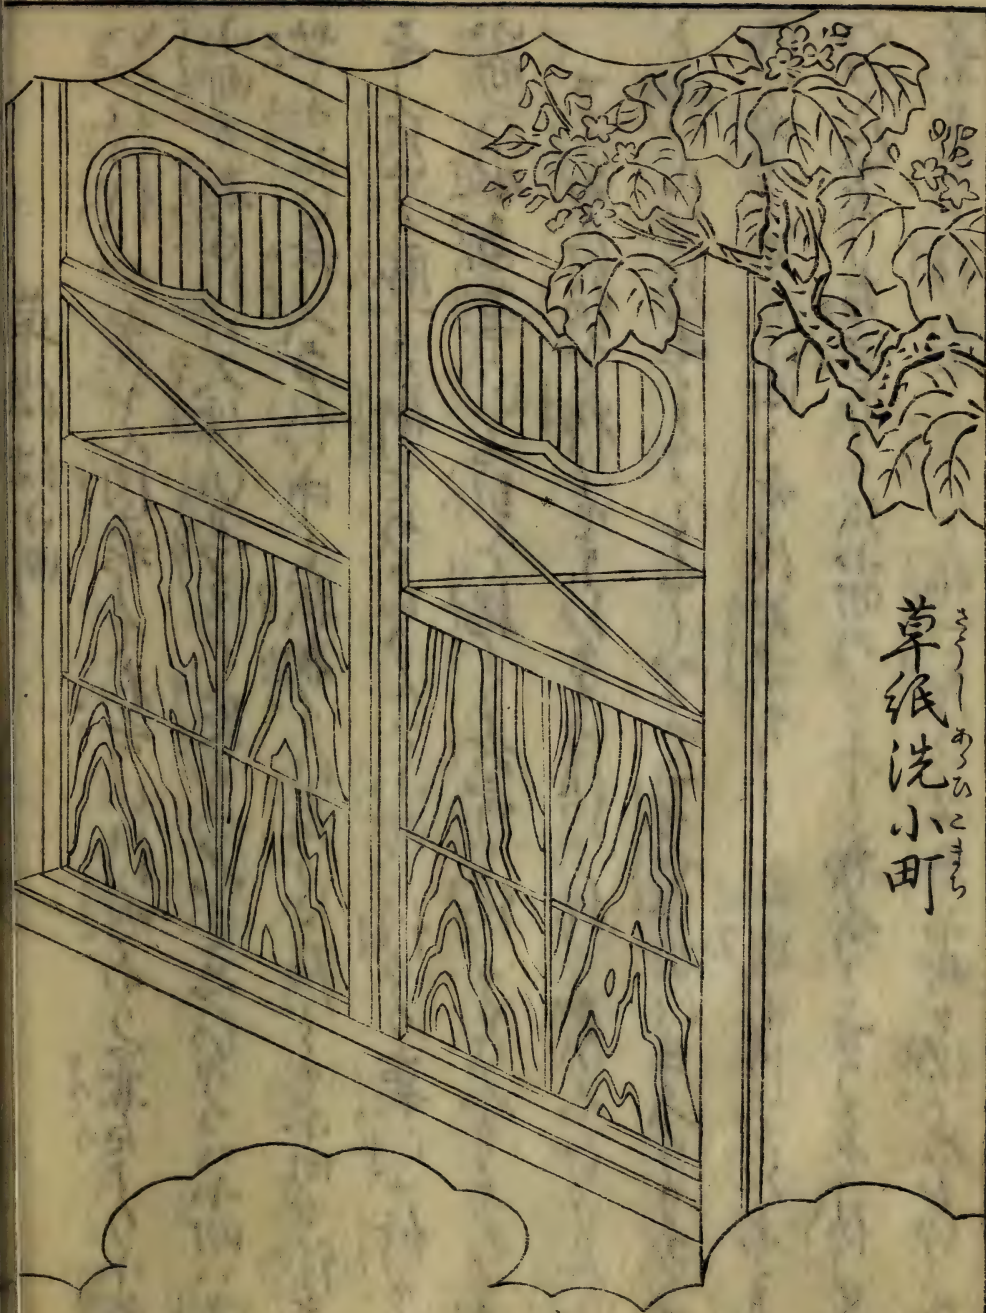 草紙洗小町
さうしあらひこまち